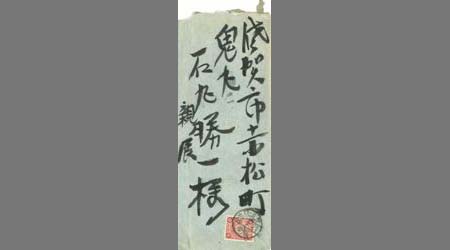 佐賀市赤松町
鬼丸
石丸勝一様
親展